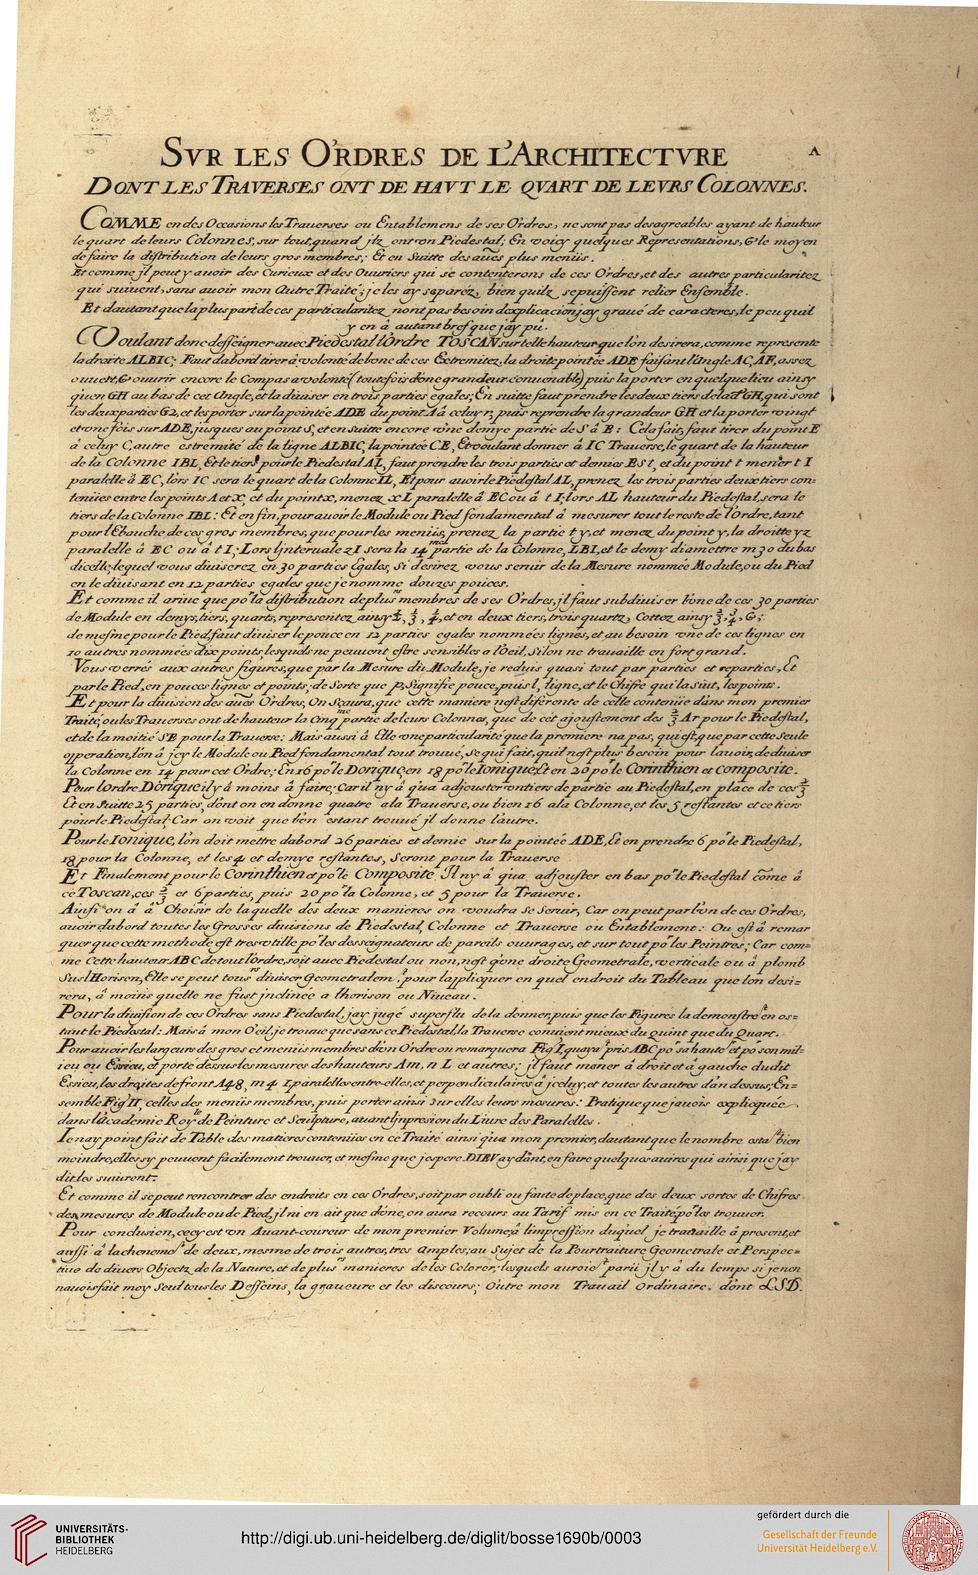 SVR LES ORDRES DE L'ARCHITECTVRE
A
DONT LES TRAVERSES ONT DE HAVT LE QVART DE LEVRS COLONNES.
COMME en des Occasions les Trauerses ou Entablemens de ses Ordres, ne sont pas desagreables ayant de hauteur
le quart de leurs Colonnes, sur tout, quand jlz ont vn Piedestal; En voicy quelques Representations, & le moyen
de faire la distribution de leurs gros membres; Et en Suitte des aũes plus meniis.
Et comme jl peut y auoir des Curieux et des Ouuriers qui se contenterons de ces Ordres, et des autres particularitez
qui suiuent, sans auoir mon Autre Traité; je les ay saparéz, bien quilz se puissent relier Ensemble.
Et dautant que la plus part de ces particularitez nont pas besoin dexplicaciõn jay graué de caracteres, le peu quil
y en â autant bref que jay pû.
Voulant donc desseigner auec Piedestal lOrdre TOSCAN sur telle hauteur que lon desirera, comme represente
la droite ALBIC; Faut dabord tirer â volonté de lune de ces Extremitez, la droite pointée ADE faisant lAngle AC, AF, assez
ouuert, & ouurir encore le Compas a volonté (toutefois dune grandeur conuenable) puis la porter en quelque lieu ainsy
quen GH au bas de cet Angle, et la diuiser en trois parties egales; En suitte faut prendre les deux tiers de lad.e GH, qui sont
les deux parties G2, et les porter sur la pointée ADE du point A â celuy r; puis reprendre la grandeur GH et la porter vingt
et vne fois sur ADE, jusques au point S, et en suitte encore vne demye partie de S â E: Cela fait, faut tirer du point E
â celuy C, autre estremité de la ligne ALBIC, la pointée CE, Et voulant donner â IC Trauerse, le quart de la hauteur
de la Colonne IBL, Et le tiers pour le Piedestal AL, faut prendre les trois parties et demies ES t, et du point t mener t I
paralelle â EC, lors IC sera le quart de la Colonne IL, Et pour auoir le Piedestal AL, prenez les trois parties deux tiers con=
tenües entre les points A et X, et du point x, menez x L paralelle â EC ou â t I; lors AL hauteur du Piedestal, sera le
tiers de la Colonne IBL: Et en fin, pour auoir le Module ou Pied fondamental â mesurer tout le reste de l'Ordre, tant
pour l'Ebauche de ces gros membres, que pour les meniis, prenez la partie t y, et menez du point y, la droitte y z
paralelle â EC ou â t I; Lors l'jnteruale z I sera la 14.me partie de la Colonne, LBI, et le demy diamettre m 30 du bas
dicelle, lequel vous diuiserez en 30 parties Egales, Si desirez vous seruir de la Mesure nommée Module, ou du Pied
en le diuisant en 12 parties egales que je nomme douzes pouces.
Et comme il ariue que po.r la distribution de plus.rs membres de ses Ordres, jl faut subdiuiser l'une de ces 30 parties
de Module en demys, tiers, quarts, representez ainsy 1/2, 1/3, 1/4, et en deux tiers, trois quartz, Cottez ainsy 2/3, 3/4, &;
de mesme pour le Pied, faut diuiser le pouce en 12 parties egales nommées lignes, et au besoin vne de ces lignes en
10 autres nommées dix points, lesquels ne peuuent estre sensibles a l'Oeil, Si lon ne trauaille en fort grand.
Vous verrés aux autres figures, que par la Mesure du Module, je reduis quasi tout par parties et reparties, Et
par le Pied, en pouces lignes et points; de Sorte que P, signifie pouce, puis l, ligne, et le Chifre qui la Siut, les points.
Et pour la diuision des aũes Ordres, On Scaura, que cette maniere nest diferente de celle contenüe dans mon premier
Traité, ou les Trauerses ont de hauteur la Cinq.me partie de leurs Colonnes, que de cet ajoustement des 2/3 A r pour le Piedestal,
et de la moitié SE pour la Trauerse: Mais aussi â Elle vne particularité que la premiere na pas, qui est, que par cette seule
operation, lon â jcy le Module ou Pied fondamental tout trouué, Se qui fait, quil nest plus besoin pour l'auoir, de diuiser
la Colonne en 14 pour cet Ordre; En 16 po.r le Dorique, en 18 po.r le Ionique, Et en 20 po.r le Corinthien et composite.
Pour lordre Dorique il y â moins â faire; Car il ny â qua adjouster vn tiers de partie au Piedestal, en place de ces 2/3
Et en Suitte 25 parties, dont on en donne quatre a la Trauerse, ou bien 16 a la Colonne, et les 5 restantes et ce tiers
pour le Piedestal; Car on voit que l'un estant trouué jl donne l'autre.
Pour le Ionique, lon doit mettre dabord 26 parties et demie sur la pointée ADE, Et en prendre 6 po.r le Piedestal,
18 pour la Colonne, et les 4 et demye restantes, Seront pour la Trauerse
Et Finalement pour le Corinthien et po.r le Composite Il ny â qua adjouster en bas po.r le Piedestal come â
ce Toscan, ces 2/3 et 6 parties, puis 20 po.r la Colonne, et 5 pour la Trauerse.
Ainsi on â â Choisir de laquelle des deux manieres on voudra Se Seruir, Car on peut par l'vn de ces Ordres,
auoir dabord toutes les Grosses diuisions de Piedestal, Colonne et Trauerse ou Entablement: Ou est â remar
quer que cette methode est tres vtille po.r les desseignateurs de pareils ouurages, et sur tout po.r les Peintres; Car com=
me Cette hauteur ABC de tout lordre, soit auec Piedestal ou non, nest qune droite Geometrale, verticale ou â plomb
Sus l'Horison, Elle se peut tous.rs diuiser Geometralem.t pour l'applicquer en quel endroit du Tableau que lon desi=
rera, â moins quelle ne fust jnclinée a l'horison ou Niueau.
Pour la diuision de ces Ordres sans Piedestal, jay jugé superflu de la donner, puis que les Figures la demonstre.t en os=
tant le Piedestal: Mais â mon Oeil, je trouue que sans ce Piedestal, la Trauerse conuient mieux du quint que du Quart.
Pour auoir les largeurs des gros et meniis membres dvn Ordre on remarquera Fig.e I, quayã pris ABC po.r sa haute.r et po.r son mil=
ieu ou Essieu, et porté dessus les mesures des hauteurs A m, n L et autres; jl faut mener â droit et â gauche dudit
Essieu, les droites de front A 48, m 4 I paralelles entre-elles, et perpendiculaires â jceluy, et toutes les autres dãn dessus, En=
semble Fig.e II, celles des meniis membres, puis porter ainsi sur elles leurs mesures: Pratique que jauois explicquée
dans l'Academie Roy.le de Peinture et Sculpture, auant l'jnpresion du Liure des Paralelles.
Ie nay point fait de Table des matieres contenües en ce Traité ainsi qu'a mon premier, dautant que le nombre esta.t bien
moindre, elles sy peuuent facilement trouuer, et mesme que jespere DIEV aydant, en faire quelques autres qui ainsi que jay
dit les suiuront.
Et comme il se peut rencontrer des endroits en ces Ordres, soit par oubli ou faute de place, que des deux sortes de Chifres
des mesures de Module ou de Pied, jl ni en ait que dune, on aura recours au Tarif mis en ce Traité po.r les trouuer.
Pour conclusion, cecy est vn Auant-coureur de mon premier Volume, â l'impression duquel je trauaille â present, et
aussi â lachenem.t de deux, mesme de trois autres, tres amples, au Sujet de la Pourtraiture Geometrale et Perspec=
tiue de diuers Objectz de la Nature, et de plus.rs manieres de les Colorer; lesquels auroie.t parü jl y â du temps si je nen
nauois fait moy seul tous les Desseins, la graueure et les discours; Outre mon Trauail ordinaire, dont LSD.
UNIVERSITÄTS-
BIBLIOTHEK
HEIDELBERG
http://digi.ub.uni-heidelberg.de/diglit/bosse1690b/0003
gefördert durch die
Gesellschaft der Freunde
Universität Heidelberg e.V.